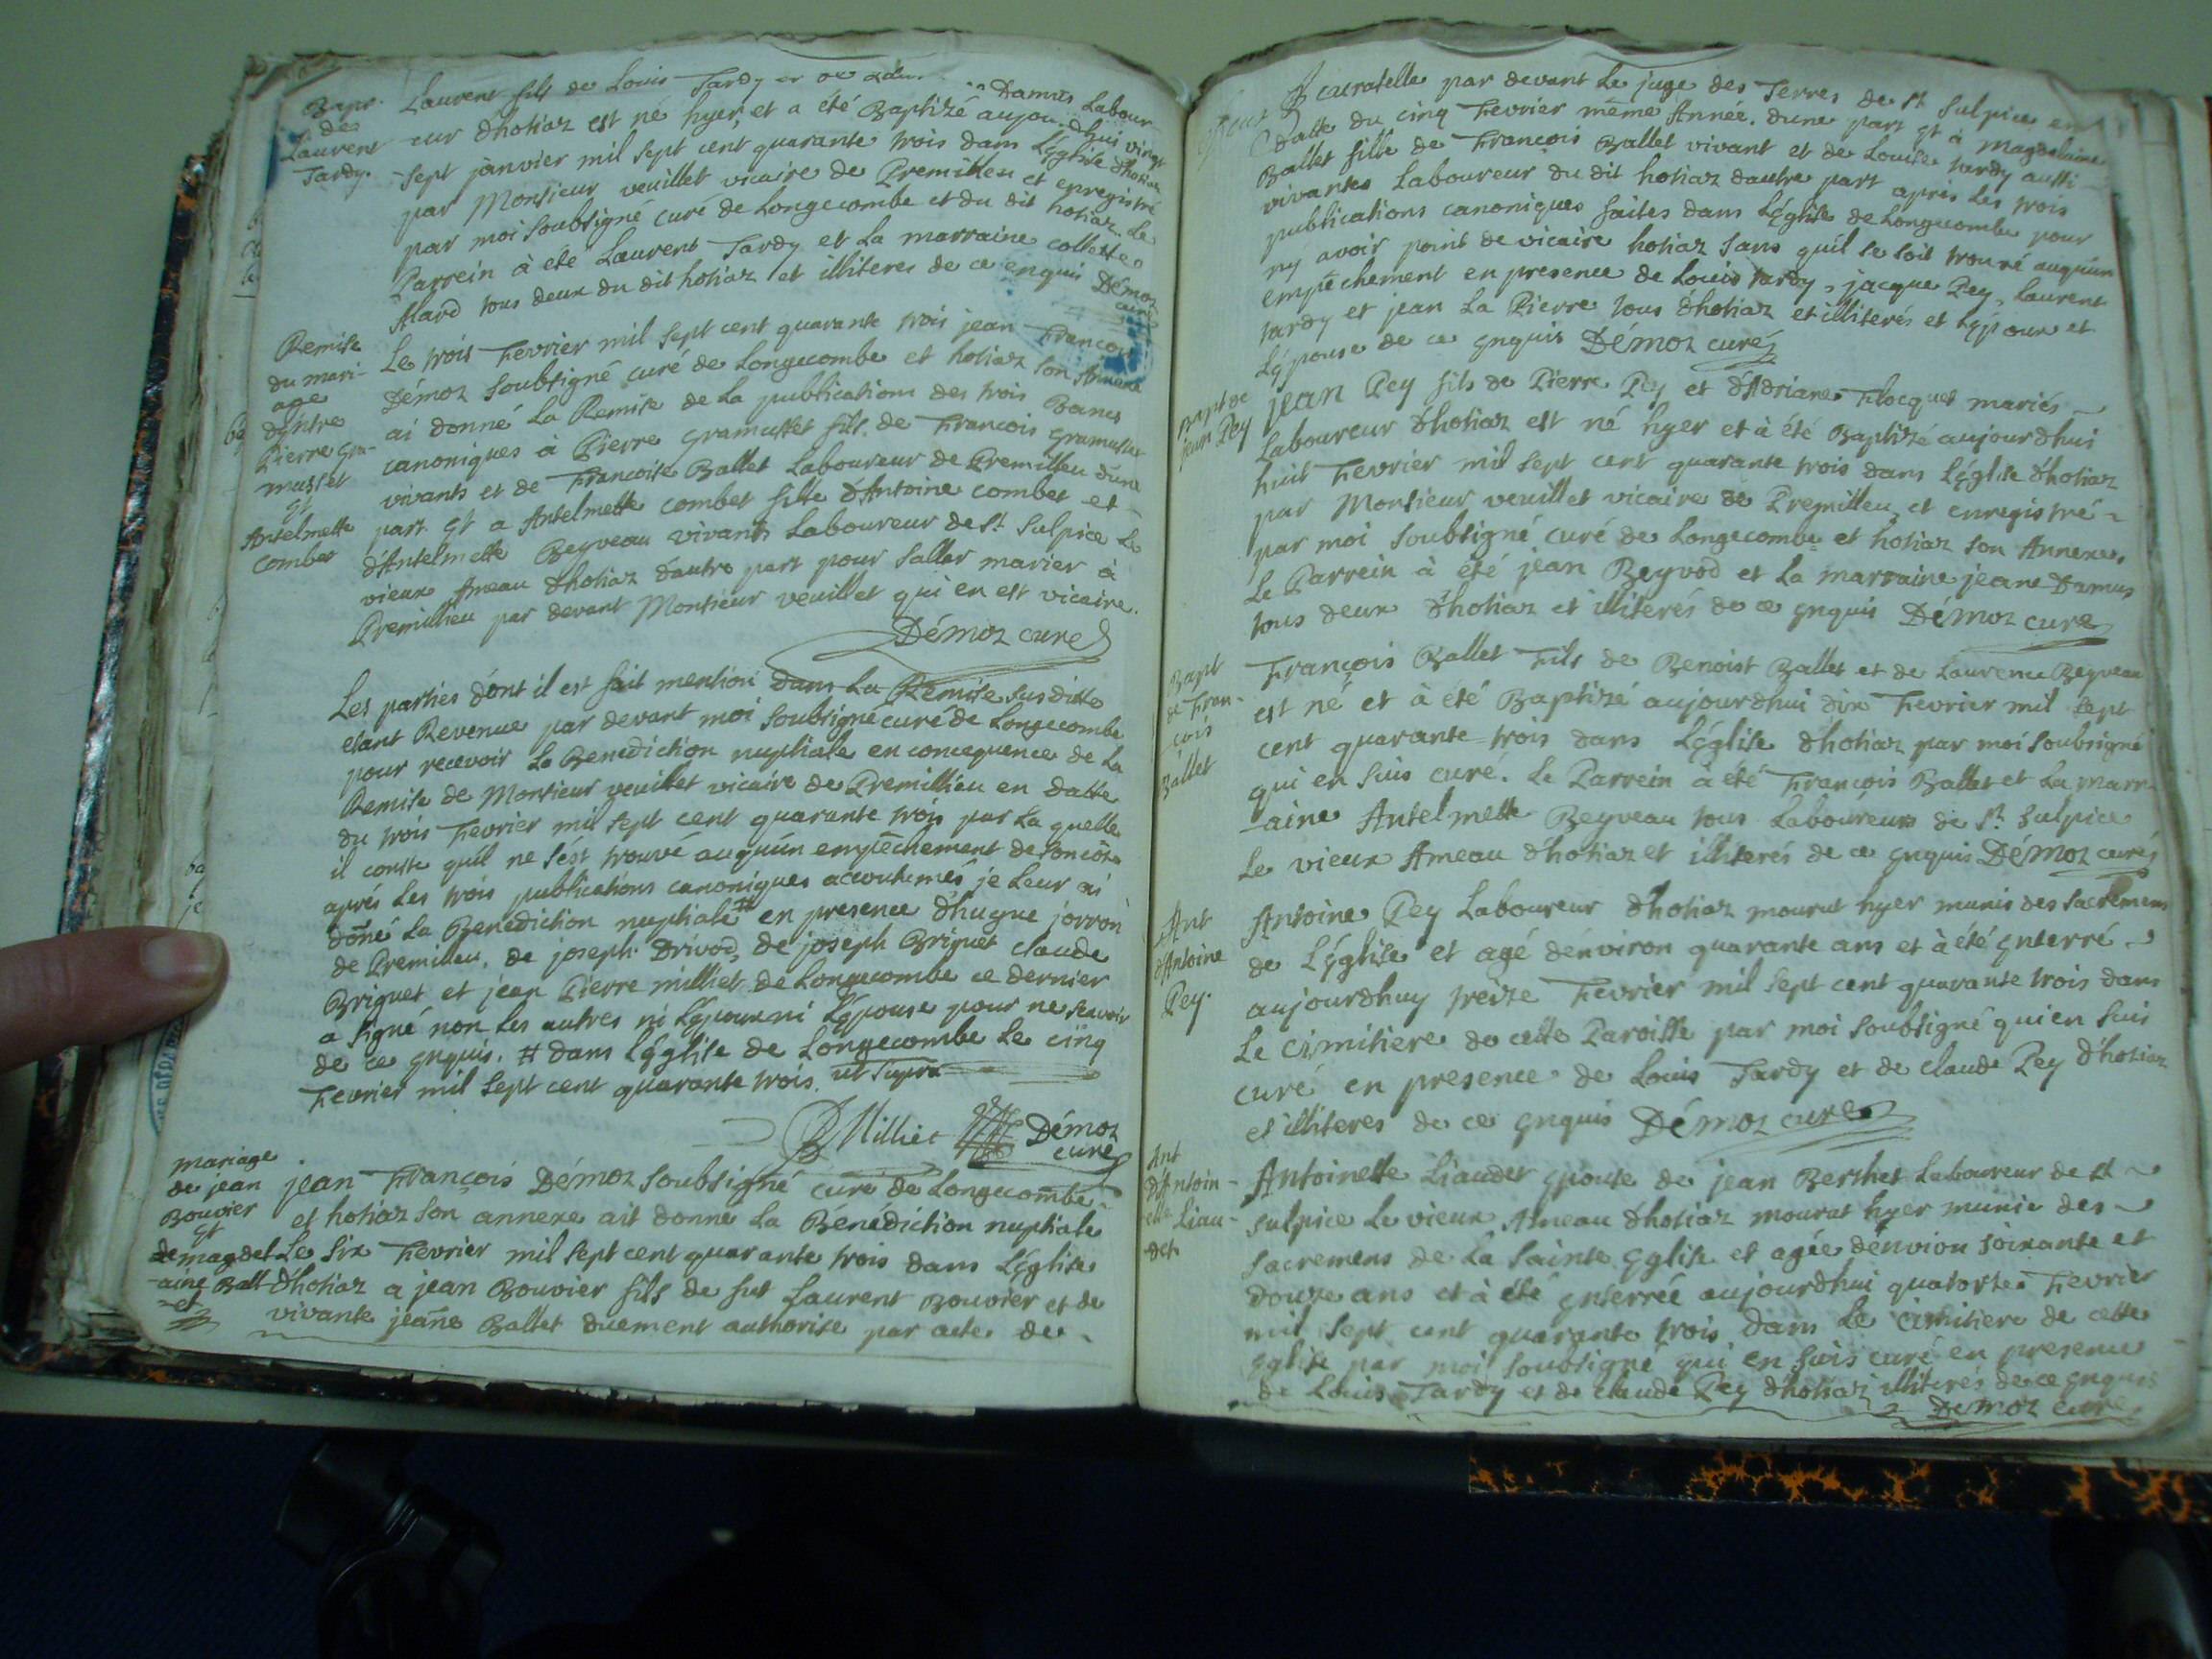 Bapt.
de
Laurent
Tardy.
Laurent fils de Louis Tardy et de Damus Labour-
eur dhotiaz est né hyer, et a été Baptizé aujourdhui vingt
sept janvier mil sept cent quarante trois dans L'église dhotiaz
par Monsieur veuillet vicaire de Premillieu et enregistré
par moi soubsigné curé de Longecombe et du dit hotiaz. Le
Parrein à été Laurent Tardy et La marraine collette
Alard tous deux du dit hotiaz et illiteres de ce enquis Démoz
curé
Remise
du mari-
age
d'entre
Pierre gra-
musset
et
Antelmette
Combet
Le trois Fevrier mil sept cent quarante trois jean Francois
Démoz soubsigné curé de Longecombe et hotiaz son Annexe
ai donné La Remise de La publications des trois Bancs
canoniques à Pierre gramusset fils de Francois gramusset
vivants et de Francoise Ballet Laboureur de Premillieu d'une
part et a Antelmette combet fille d'Antoine combet et
d'Antelmette Beyveau vivants Laboureur de St Sulpice Le
vieux Ameau dhotiaz dautre part pour saller marier à
Premillieu par devant Monsieur veuillet qui en est vicaire.
Démoz curé
Les parties dont il est fait mention dans La Remise susditte
etant Revenue par devant moi soubsigné curé de Longecombe
pour recevoir La Benediction nuptiale en concequence de La
Remise de Monsieur veuillet vicaire de Premillieu en datte
du trois Fevrier mil sept cent quarante trois par La quelle
il conste qu'il ne s'est trouvé auqu'un empêchement de son côté
aprés Les trois publications canoniques accoutumés je Leur ai
doñé La Benediction nuptiale # en presence dhugue jorron
de Premillieu, de joseph Drivod, de joseph Briguet claude
Briguet et jean Pierre milliet de Longecombe ce dernier
a signé non Les autres ni L'epoux ni L'epouse pour ne scavoir
de ce enquis. # dans L'église de Longecombe Le cinq
Fevrier mil sept cent quarante trois. ut supra
Milliet Démoz
curé
mariage
de jean
Bouvier
et
de magdel-
aine Ball-
et
jean François Démoz soubsigné curé de Longecombe
et hotiaz son annexe ait donné La Bénédiction nuptiale
Le six Fevrier mil sept cent quarante trois dans L'église
dhotiaz a jean Bouvier fils de fut Laurent Bouvier et de
vivante jeañe Ballet duement authorise par acte de
curatelle par devant Le juge des Terres de St Sulpice en
datte du cinq Fevrier même Année. dune part et à Magdelaine
Ballet fille de François Ballet vivant et de Louise tardy aussi
vivantes Laboureur du dit hotiaz dautre part aprés Les trois
publications canoniques faites dans L'église de Longecombe pour
ny avoir point de vicaire hotiaz sans qu'il se soit trouvé auqu'un
empêchement en presence de Louis tardy, jacque Pey, Laurent
tardy et jean La Pierre tous dhotiaz et illiterés et L'époux et
L'épouse de ce enquis Démoz curé
Bapt de
jean Pey
jean Pey fils de Pierre Pey et d'Adriane Flocquet mariés
Laboureur dhotiaz est né hyer et à été Baptizé aujourdhui
huit Fevrier mil sept cent quarante trois dans L'église d'hotiaz
par Monsieur veuillet vicaire de Premillieu, et enregistré
par moi soubsigné curé de Longecombe et hotiaz son Annexe.
Le Parrein à été jean Beyvod et La marraine jeane Damus
tous deux d'hotiaz et illiterés de ce enquis Démoz curé
Bapt
de Fran-
çois
Ballet
François Ballet Fils de Benoist Ballet et de Laurence Beyveau
est né et à été Baptizé aujourdhui dix Fevrier mil sept
cent quarante trois dans L'église dhotiaz par moi soubsigné
qui en suis curé. Le Parrein à été François Ballet et La marr-
aine Antelmette Beyveau tous Laboureurs de St Sulpice
Le vieux Ameau dhotiaz et illiterés de ce enquis Démoz curé
Ant
d'Antoine
Pey.
Antoine Pey Laboureur dhotiaz mourut hyer munis des sacremens
de L'église et agé d'environ quarante ans et à été enterré
aujourdhuy treize Fevrier mil sept cent quarante trois dans
Le cimitiere de cette Paroisse par moi soubsigné qui en suis
curé en presence de Louis Tardy et de claude Pey d'hotiaz
et illiteres de ce enquis Démoz curé
Ant
d'Antoin-
ette Liau-
det
Antoinette Liaudet epouse de jean Berthet Laboureur de St
Sulpice Le vieux Ameau dhotiaz mourut hyer munie des
sacremens de La sainte eglise et agée d'envion soixante et
douze ans et à été enterrée aujourdhui quatorze Fevrier
mil sept cent quarante trois dans Le cimitiere de cette
eglise par moi soubsigné qui en suis curé en presence
de Louis Tardy et de claude Pey d'hotiaz illiterés de ce enquis
Démoz curé